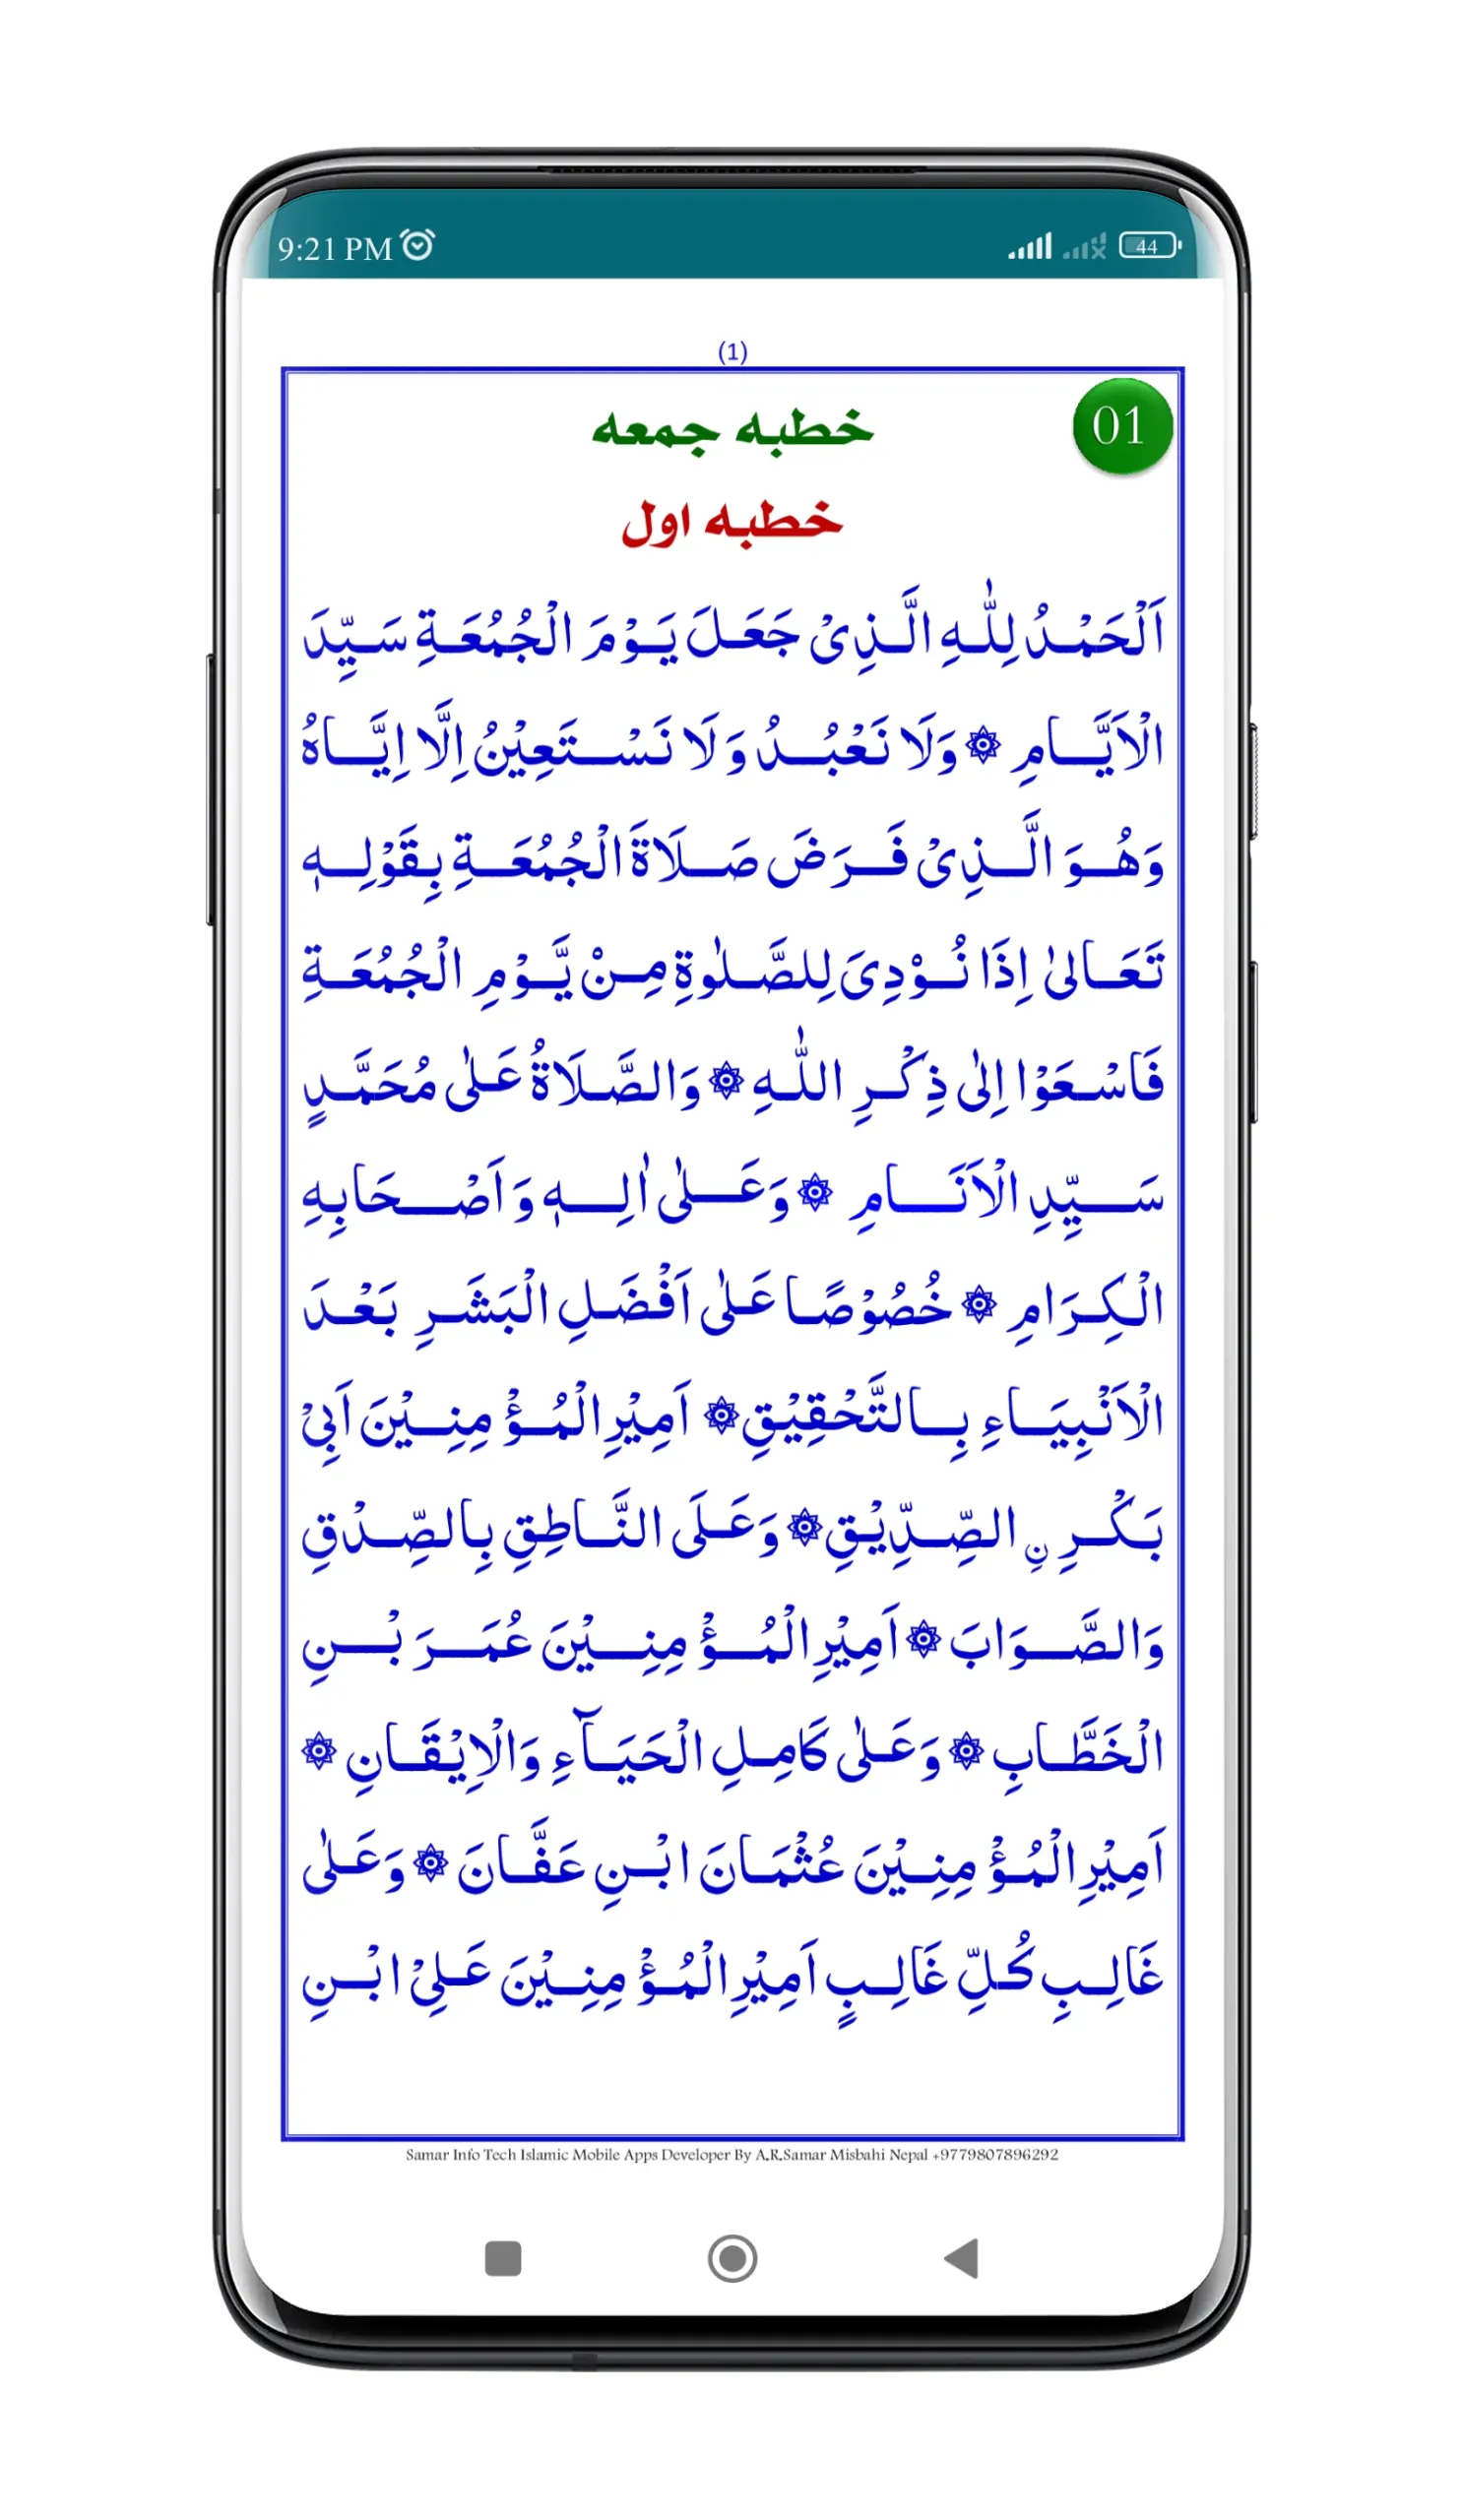 9:21 PM
44
(1)
01
خطبه جمعه
خطبه اول
اَلْحَمْدُ لِلّٰهِ الَّذِىْ جَعَلَ يَوْمَ الْجُمُعَةِ سَيِّدَ
الْاَيَّامِ ۞ وَلَا نَعْبُدُ وَلَا نَسْتَعِيْنُ اِلَّا اِيَّاهُ
وَهُوَ الَّذِىْ فَرَضَ صَلَاةَ الْجُمُعَةِ بِقَوْلِهٖ
تَعَالىٰ اِذَا نُوْدِىَ لِلصَّلٰوةِ مِنْ يَّوْمِ الْجُمُعَةِ
فَاسْعَوْا اِلىٰ ذِكْرِ اللّٰهِ ۞ وَالصَّلَاةُ عَلىٰ مُحَمَّدٍ
سَيِّدِ الْاَنَامِ ۞ وَعَلىٰ اٰلِهٖ وَاَصْحَابِهِ
الْكِرَامِ ۞ خُصُوْصًا عَلىٰ اَفْضَلِ الْبَشَرِ بَعْدَ
الْاَنْبِيَاءِ بِالتَّحْقِيْقِ ۞ اَمِيْرِ الْمُؤْمِنِيْنَ اَبِيْ
بَكْرِ نِ الصِّدِّيْقِ ۞ وَعَلَى النَّاطِقِ بِالصِّدْقِ
وَالصَّوَابَ ۞ اَمِيْرِ الْمُؤْمِنِيْنَ عُمَرَ بْنِ
الْخَطَّابِ ۞ وَعَلىٰ كَامِلِ الْحَيَآءِ وَالْاِيْقَانِ ۞
اَمِيْرِ الْمُؤْمِنِيْنَ عُثْمَانَ ابْنِ عَفَّانَ ۞ وَعَلىٰ
غَالِبِ كُلِّ غَالِبٍ اَمِيْرِ الْمُؤْمِنِيْنَ عَلِيْ ابْنِ
Samar Info Tech Islamic Mobile Apps Developer By A.R.Samar Misbahi Nepal +9779807896292